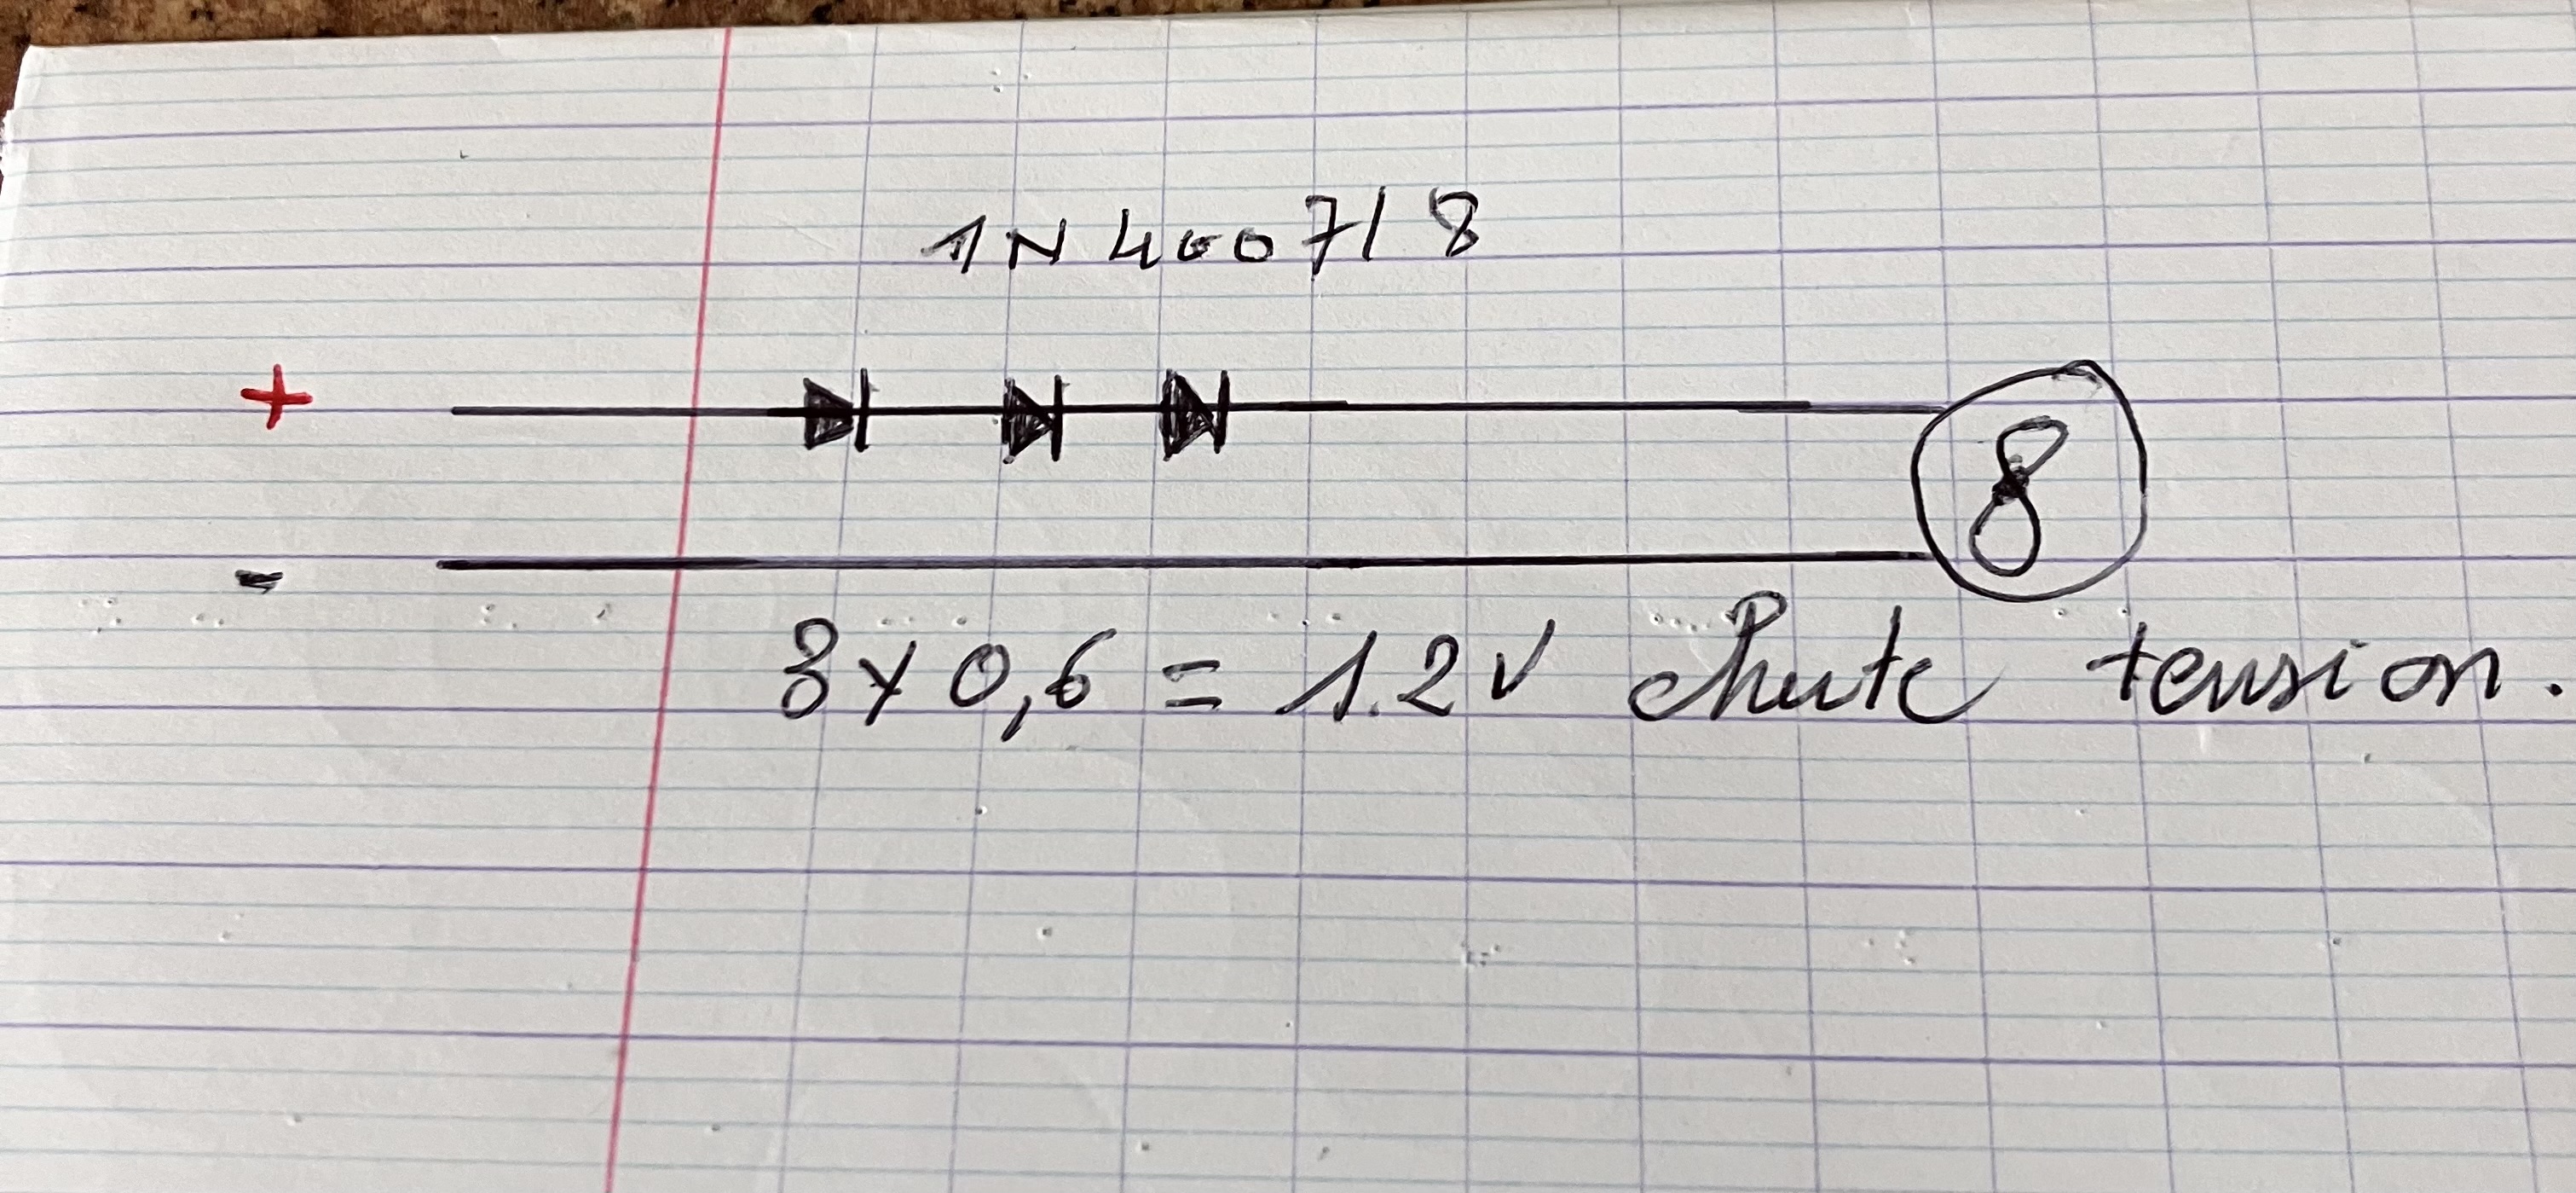 1N4007/8
+
-
8
3x0,6 = 1.2V chute tension.